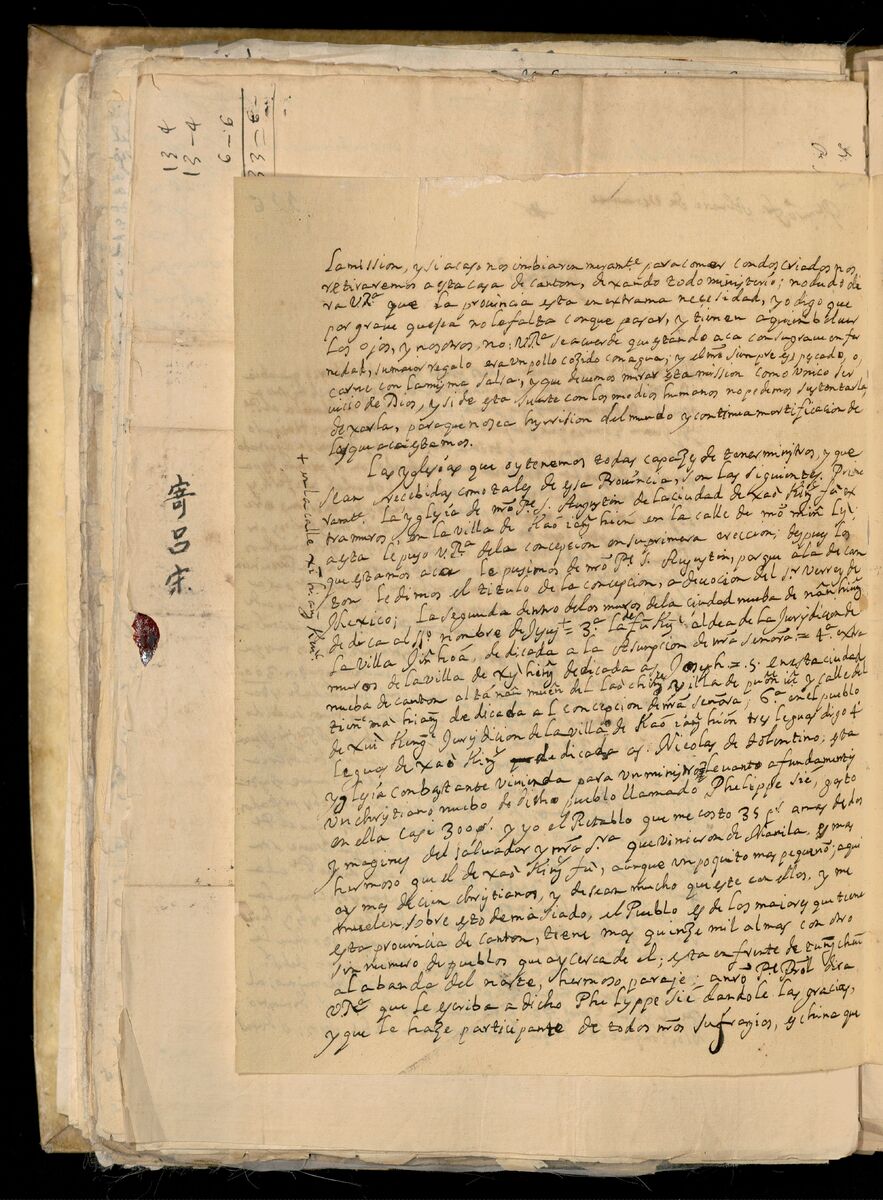 la mission, y si acaso nos imbiaren meramte. para comer con dos criados nos
retiraremos a esta casa de canton, dexando todo ministerio; no dudo di
ra VRa. que la provincia esta en extrema necesidad, y o digo que
por grave que sea no le falta con que pasar, y tienen a quien bolver
los ojos, y nosotros no; VRa. se acuerde que estando aca con su grave enfer
medad, su maior regalo era un pollo cozido con agua; y el mio siempre es pescado, o
carne con la misma salsa, y que devemos mirar esta mission como unico ser
vicio de Dios, y si de esta suerte con los medios humanos no podemos sustentarla,
dexarla, para que no sea hyrrision del mundo y continua mortificacion de
los que aca estamos.
Las yglesias que oy tenemos todas capazes de tener ministros, y que
sean recebidas como tales de esa Provincia, son las siguientes. Prime
ramte. la yglesia de nro. Pe. S. Augustin de la ciudad de xao King fu ex
tramuros, en la villa de Kao iao hien en la calle de
a esta le puso VRa. de la concepcion en su primera ereccion; despues los
que estamos aca le pusimos de nro Pe. S. Augustin, porque a la de can
ton le dimos el titulo de la concepcion, a devocion del Sr. Virrey de
Mexico; la segunda dentro de los muros de la ciudad nueba de nan hiung
dedicada al SSo. nombre de Jesus = 3.a la de fu hi aldea de la Jurisdicion de
la villa Jin hoa, dedicada a la Assumpcion de nra. señora = 4.a extra
muros de la villa de xy hing dedicada a S. Joseph = 5. en esta ciudad
nueba de canton al tai nan muen del villa de y calle del
tien ma hiang dedicada a la concepcion de nra Señora; 6.a en el pueblo
de Xui King Jurisdicion de la villa de Kao iao hien tres leguas digo 4
leguas de xao King dedicada a S. Nicolas de tolentino; esta
yglesia con bastante vivienda para un ministro levanto a fundamentis
un christiano nuebo de dicho pueblo llamado Phelippe Sie, gasto
en ella casi 300 ps. y yo el Retablo que me costo 35 ps. a mas de dos
ymagines del salvador y nra Sra. que vinieron de Manila, es mas
hermoso que el de xao King fu, aunque un poquito mas pequeño; aqui
ay mas de cien christianos, y desean mucho que este con ellos, y me
muelen sobre esto demasiado, el Pueblo es de los maiores que tiene
esta provincia de canton, tiene mas quinze mil almas con otro
sin numero de pueblos que ay cerca de el; esta en frente de
a la banda del norte, hermoso paraje; a nro Pe. Prol. dira
VRa. que le escriba a dicho Phelyppe Sie dandole las gracias,
y que le haze participante de todos nros sufragios, es china que
+ en la calle
寄呂宋
13 4
13 – 4
6 – 6
33 = 6 –